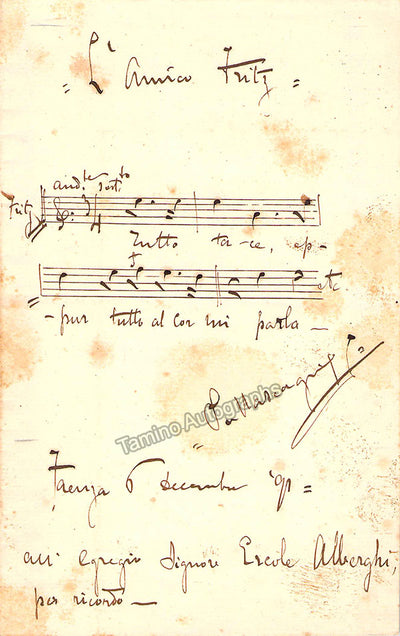 = L'amico Fritz =
And.te sost.to
Fritz 3/4
Tutto ta-ce, ep-
etc
-pur tutto al cor mi parla —
P. Mascagni
Tamino Autographs
Faenza 6 decembre '91 =
all' egregio Signore Ercole Alberghi,
per ricordo —